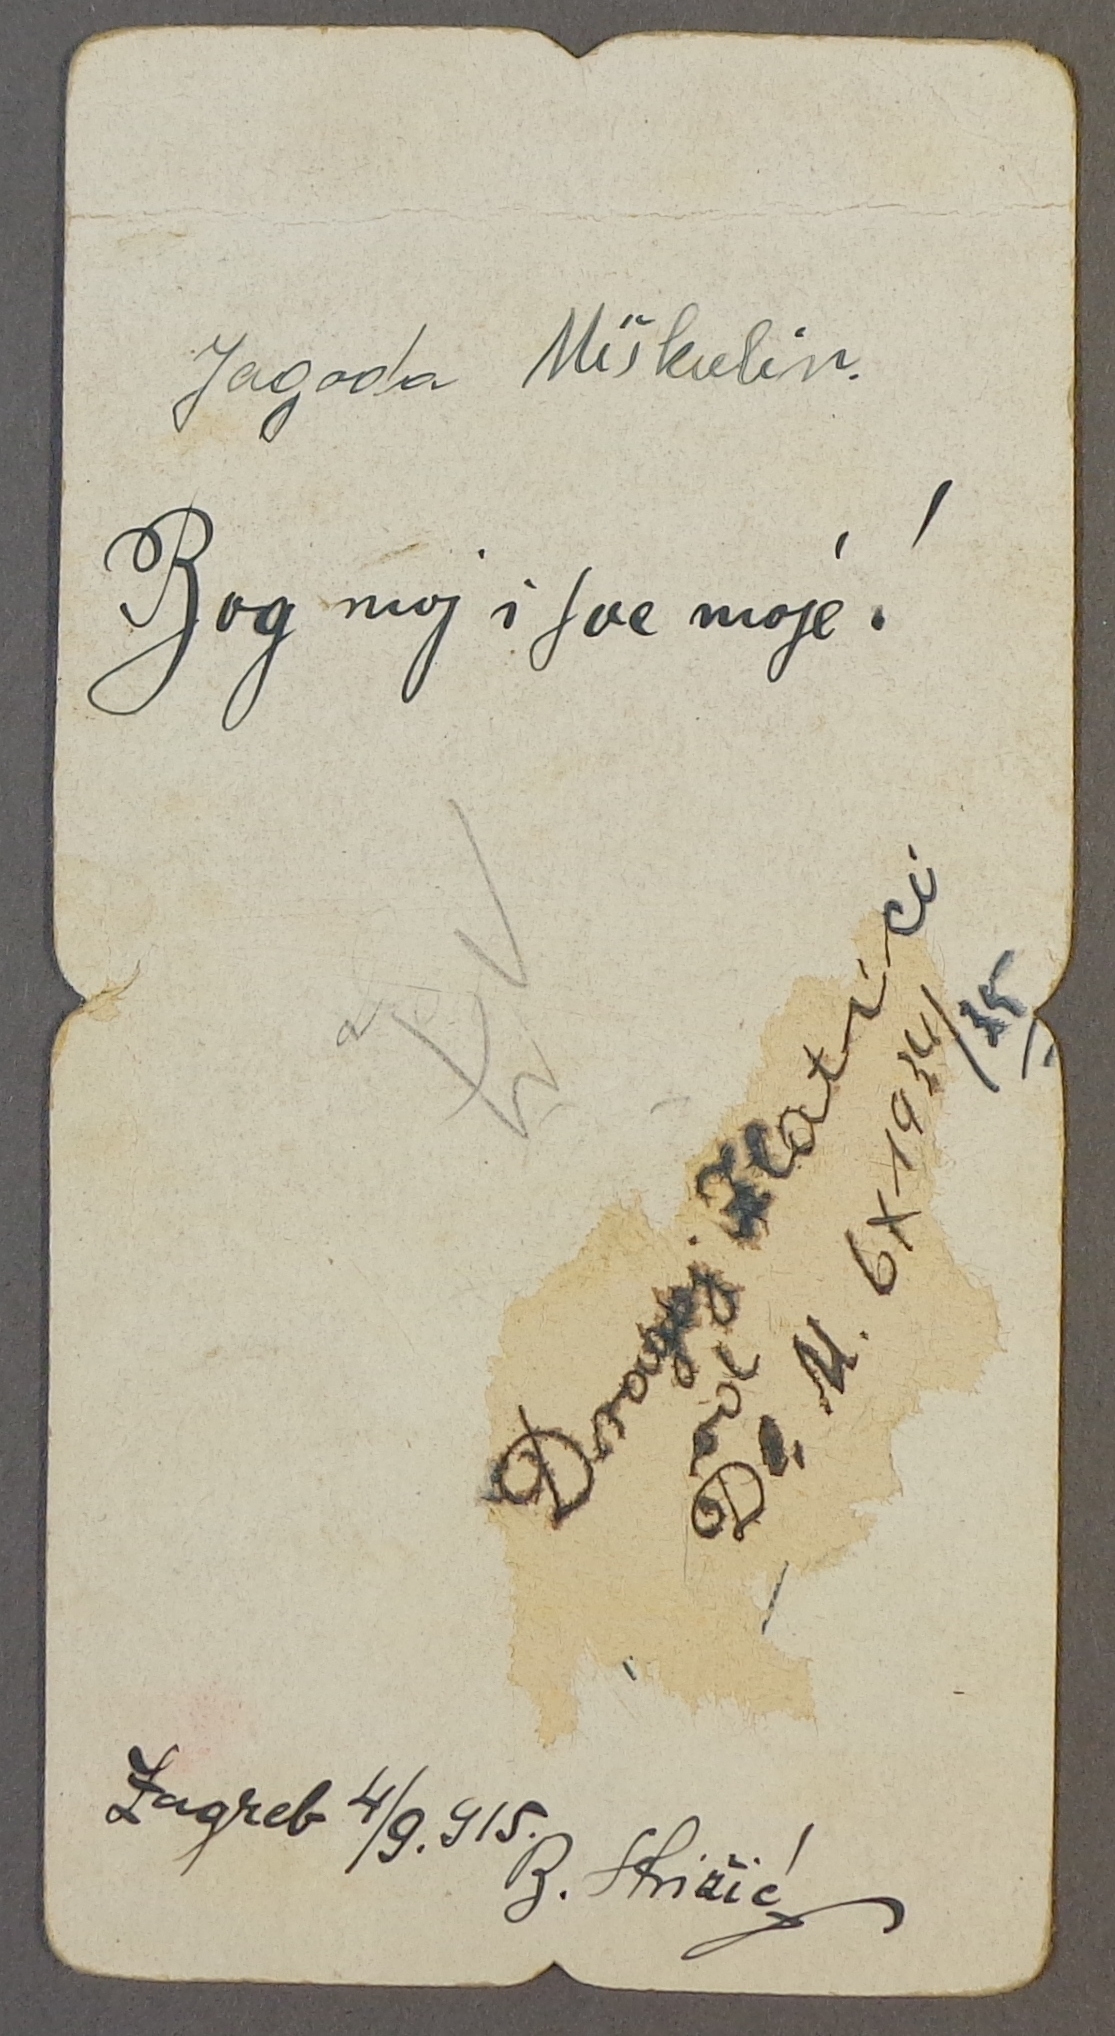 Jagoda Miškulin.
Bog moj i sve moje!
Dragoj Zlatici
od
D. M. 6X-1934/35
Zagreb 4/9.915.
B. Strižić